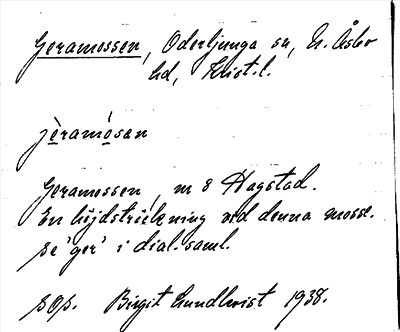 Geramossen, Oderljunga sn, N. Åsbo
hd, Krist. l.
jèramósan
Geramossen, m 8 Hagstad.
En höjdsträckning ved denna mosse.
se 'ger' i dial. saml.
sop. Birgit Lundkvist 1938.